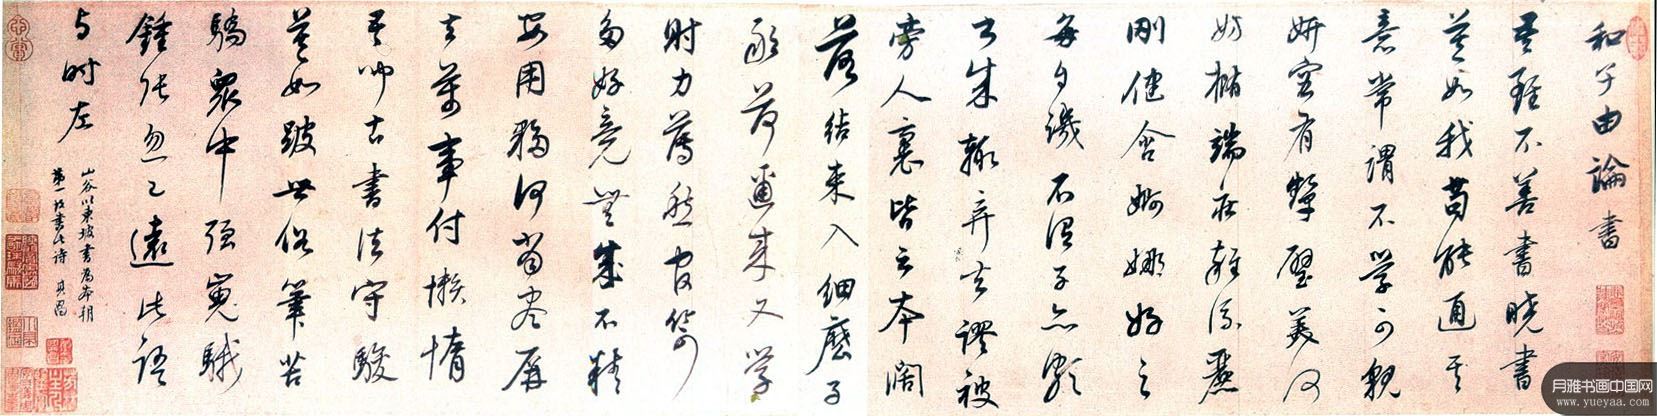 和子由論書
吾雖不善書曉書
莫如我苟能通其
意常謂不學可貌
妍容有顰璧美何
妨橢端莊雜流麗
剛健含婀娜好之
每自譏不謂子亦頗
書成輒棄去謬被
旁人裹皆云本闊
落結束入細麼子
敢荷邇來又學
射力薄愁官笴
多好竟無成不精
安用夥何當盡屏
去萬事付懶惰
吾聞古書法守駿
莫如跛世俗筆苦
驕眾中強嵬騀
鍾張忽已遠此語
與時左
山谷以東坡書為本朝
第一故書此詩 其昌
月雅书画中国网
www.yueyaa.com